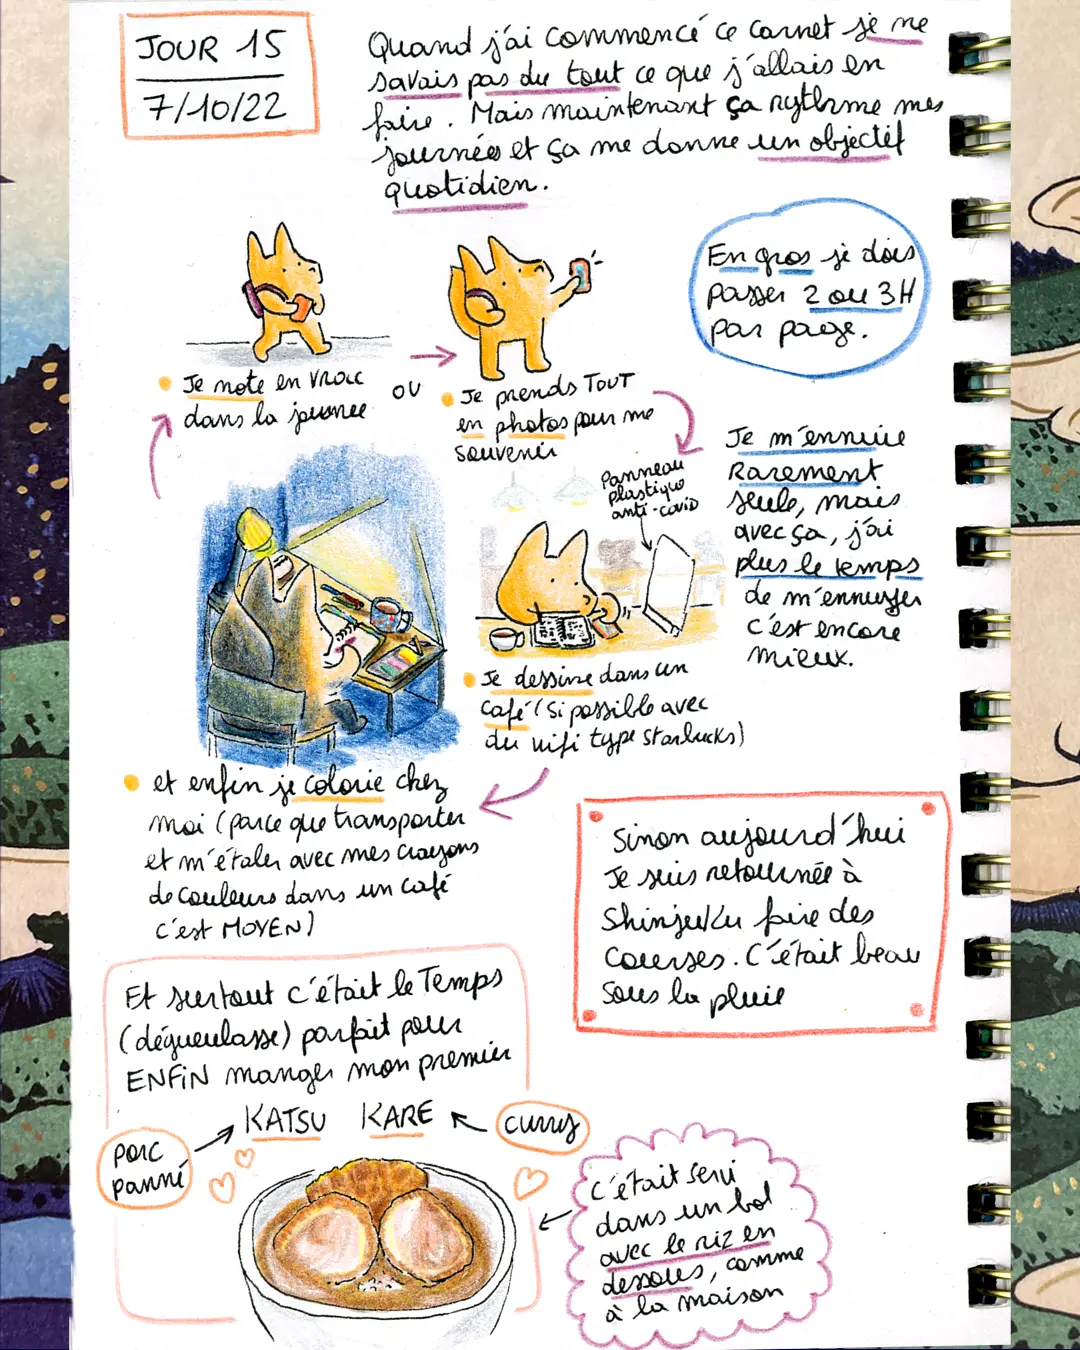 JOUR 15
7/10/22
Quand j'ai commencé ce carnet je ne
savais pas du tout ce que j'allais en
faire. Mais maintenant ça rythme mes
journées et ça me donne un objectif
quotidien.
En gros je dois
passer 2 ou 3H
par page.
Je note en vrac
dans la journée
ou
Je prends TOUT
en photos pour me
souvenir
Panneau
plastique
anti-covid
Je m'ennuie
Rarement
seule, mais
avec ça, j'ai
plus le temps
de m'ennuyer
c'est encore
mieux.
Je dessine dans un
café (si possible avec
du wifi type starbucks)
et enfin je colorie chez
moi (parce que transporter
et m'étaler avec mes crayons
de couleurs dans un café
c'est MOYEN)
Sinon aujourd'hui
Je suis retournée à
Shinjuku faire des
courses. C'était beau
sous la pluie
Et surtout c'était le Temps
(dégueulasse) parfait pour
ENFIN manger mon premier
KATSU KARE
curry
porc
panné
c'était servi
dans un bol
avec le riz en
dessous, comme
à la maison